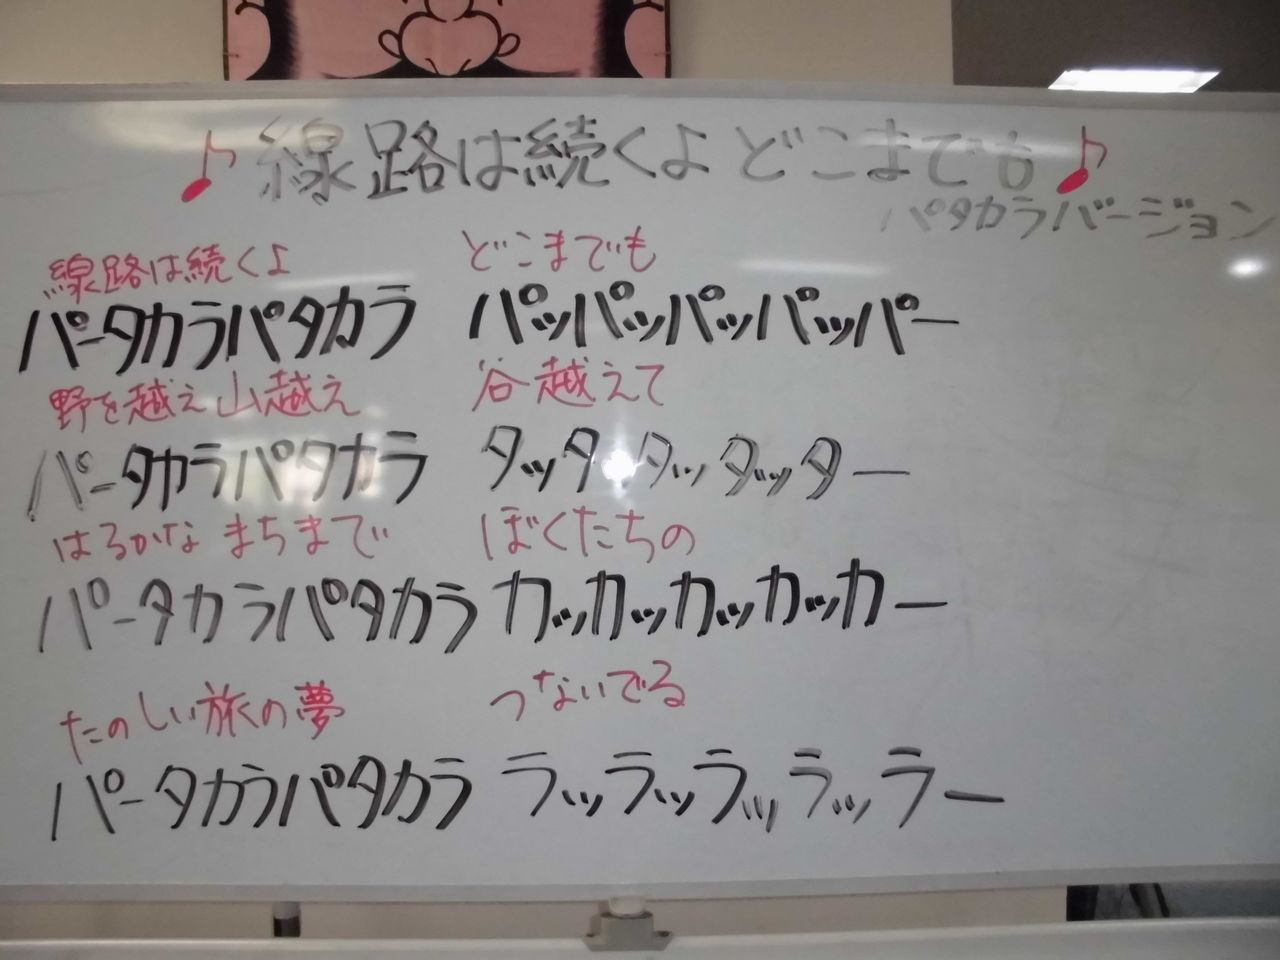 ♪線路は続くよ どこまでも♪
パタカラバージョン
線路は続くよ どこまでも
パータカラパタカラ パッパッパッパッパー
野を越え山越え 谷越えて
パータカラパタカラ タッタッタッタッター
はるかな まちまで ぼくたちの
パータカラパタカラ カッカッカッカッカー
たのしい旅の夢 つないでる
パータカラパタカラ ラッラッラッラッラー